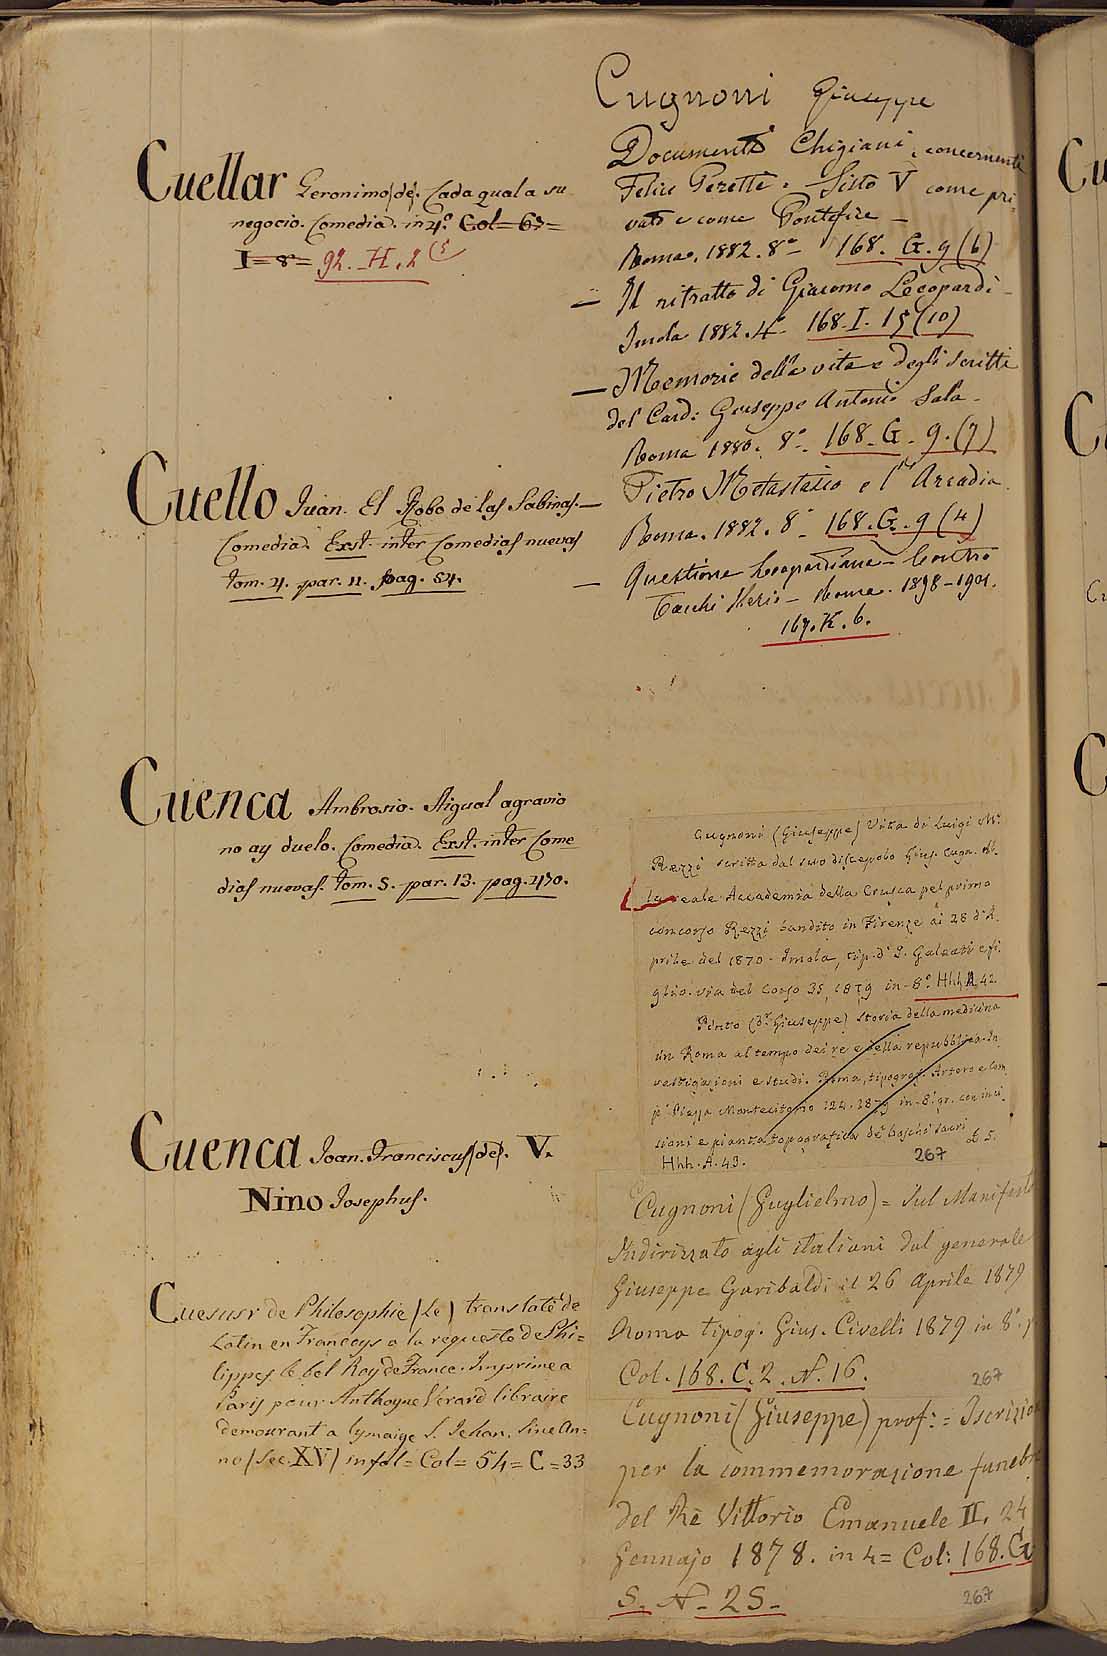 Cuellar Geronimo (de). Cada qual a su
negocio. Comedia. in 4º. Col = 63 =
I = 8 = 92. H. 2 (5
Cuello Juan. El Robo de las Sabinas. —
Comedia. Exst. inter Comedias nuevas
tom. 4. par. 11. pag. 54.
Cuenca Ambrosio. Aigual agravio
no ay duelo. Comedia. Exst. inter Come
dias nuevas. tom. 5. par. 13. pag. 470.
Cuenca Joan. Franciscus (de). V.
Nino Josephus.
Cuesusr de Philosophie (Le) translaté de
Latin en Francoys a la requeste de Phi=
lippes le bel Roy de France. Imprime a
Paris pour Anthoyne Verard libraire
demourant a lymaige S. Jehan. Sine An=
no (Sec. XV) in fol = Col = 54 = C = 33
Cugnoni Giuseppe
Documenti Chigiani, concernenti
Felice Peretti. Sisto V come pri-
vato e come Pontefice —
Roma. 1882. 8º — 168. G. 9 (6)
— Il ritratto di Giacomo Leopardi —
Imola 1882. 4º 168. I. 15 (10)
— Memorie della vita e degli scritti
del Card: Giuseppe Antonio Sala —
Roma 1880. 8º — 168. G. 9. (7)
Pietro Metastasio e l'Arcadia.
Roma. 1882. 8º — 168. G. 9 (4)
— Questione Leopardiana — Contro
Tacchi — Roma. 1898 - 1901.
167. K. 6.
Cugnoni (Giuseppe) Vita di Luigi Mª
Rezzi scritta dal suo discepolo Gius. Cugn. Al.
la reale Accademia della Crusca pel primo
concorso Rezzi bandito in Firenze ai 28 d'A.
prile del 1870 - Imola, tip. d'I. Galeati e fi.
glio. via del Corso 35, 1879 in-8º. Hhh A 42
Pinto (Dr. Giuseppe) Storia della medicina
in Roma al tempo dei re e della repubblica. In
vestigazioni e studi. Roma, tipograf. Artero e Com
pª Piazza Montecitorio 124. 1879 in-8º. gr. con inci
sioni e pianta topografica de' boschi sacri £ 5.
Hhh. A. 43. 267
Cugnoni (Guglielmo) = Sul Manifesto
Indirizzato agli italiani dal generale
Giuseppe Garibaldi il 26 Aprile 1879
Roma tipog. Gius. Civelli 1879 in 8º. p
Col. 168. C. 2. N. 16. 267
Cugnoni (Giuseppe) prof: = Iscrizion
per la commemorazione funebr
del Rè Vittorio Emanuele II. 24
Gennajo 1878. in 4 = Col: 168. G
S. N. 25. 267